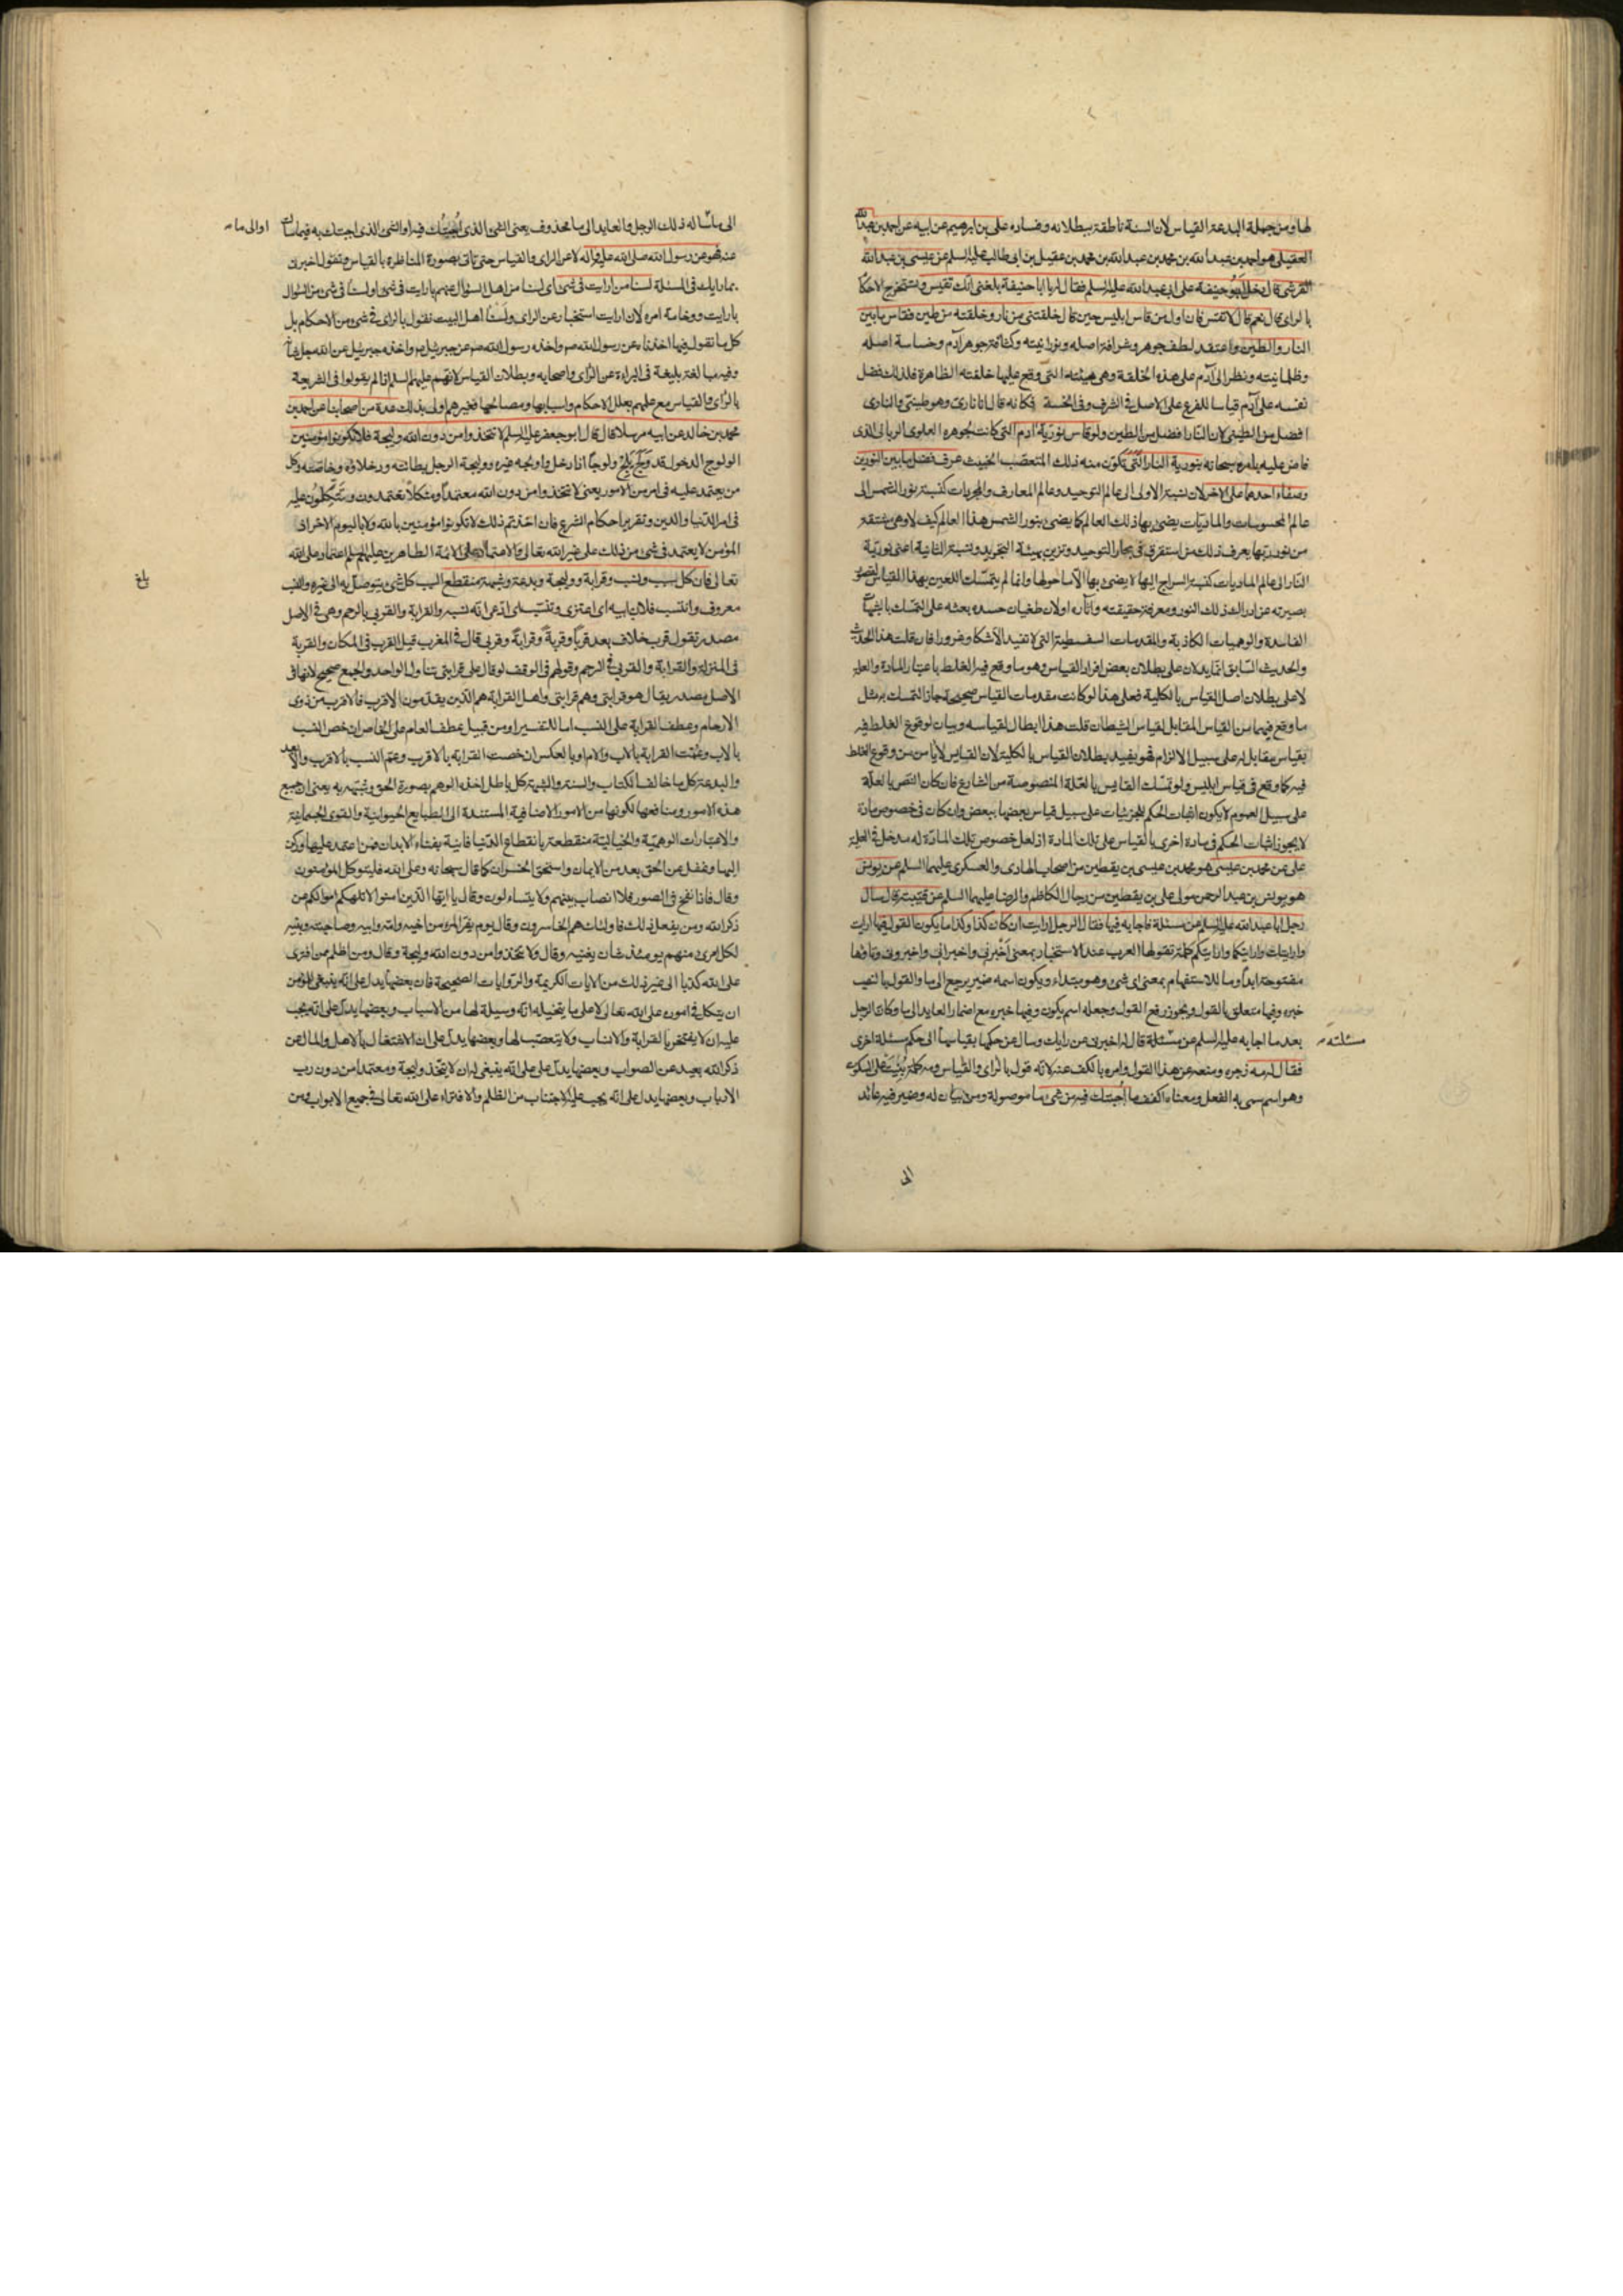 لها ومن جملة البدعة القياس لان السنة ناطقة ببطلانه وفساده على بن ابرهيم عن ابيه عن احمد بن عبدالله
العقيلى هو احمد بن عبدالله بن محمد بن عبدالله بن محمد بن عقيل بن ابى طالب عليه السلم عن عيسى بن عبدالله
القرشى قال دخل ابوحنيفة على ابى عبدالله عليه السلم فقال له يا ابا حنيفة بلغنى انك تقيس وتستخرج الاحكام
بالراى قال نعم قال لا تقس فان اول من قاس ابليس حين قال خلقتنى من نار وخلقته من طين فقاس ما بين
النار والطين واعتقد لطف جوهره وشرافة اصله ونورانيته وكثافة جوهر آدم وخساسة اصله
وظلمانيته ونظر الى آدم على هذه الخلقة وهى هيئته التى وقع عليها خلقته الظاهرة فلذلك فضل
نفسه على آدم قياسا للفرع على الاصل فى الشرف وفى الخسة فكانه قال انا نارى وهو طينى والنارى
افضل من الطينى لان النار افضل من الطين ولو قاس نورية آدم التى كانت لجوهره العلوى الربانى الذى
فاض عليه بامره سبحانه بنورية النار التى تكون منه ذلك المتعصب الخبيث عرف فضل ما بين النورين
وصفاء احدهما على الاخر لان نسبة الاولى الى عالم التوحيد وعالم المعارف والمجردات كنسبة نور الشمس الى
عالم المحسوسات والماديات يضئ بها ذلك العالم كما يضئ بنور الشمس هذا العالم كيف لا وهى مقتبسة
من نور ربها يعرف ذلك من استغرق فى بحار التوحيد وتزين بهيئة التجريد ونسبة الثانية اعنى نورية
النار الى عالم الماديات كنسبة السراج اليها لا يضئ بها الا ما حولها وانما لم يتمسك اللعين بهذا القياس لقصور
بصيرته عن ادراك ذلك النور ومعرفة حقيقته وآثاره او لان طغيان حسده بعثه على التمسك بالشبهات
الفاسدة والوهميات الكاذبة والمقدمات السفسطية التى لا تفيد الا شكا وغرورا فان قلت هذا الحديث
والحديث السابق انما يدلان على بطلان بعض افراد القياس وهو ما وقع فيه الغلط باعتبار المادة والعلة
لا على بطلان اصل القياس بالكلية فعلى هذا لو كانت مقدمات القياس صحيحة جاز التمسك به مثل
ما وقع فيهما من القياس المقابل لقياس الشيطان قلت هذا ابطال لقياسه وبيان لوقوع الغلط فيه
بقياس مقابل له على سبيل الالزام فهو يفيد بطلان القياس بالكلية لان القياس لا يأمن من وقوع الغلط
فيه كما وقع فى قياس ابليس ولو تمسك القايس بالعلة المنصوصة من الشارع فان كان النص بالعلة
على سبيل العموم لا يكون اثبات الحكم للجزئيات على سبيل قياس بعضها ببعض وان كان فى خصوص مادة
لا يجوز اثبات الحكم فى مادة اخرى بالقياس على تلك المادة اذ لعل خصوص تلك المادة له مدخل فى العلية
على عن محمد بن عيسى هو محمد بن عيسى بن يقطين من اصحاب الهادى والعسكرى عليهما السلم عن يونس
هو يونس بن عبد الرحمن مولى على بن يقطين من رجال الكاظم والرضا عليهما السلم عن قتيبة قال سأل
رجل ابا عبدالله عليه السلم عن مسئلة فاجابه فيها فقال الرجل ارايت ان كان كذا وكذا ما يكون القول فيها ارايت
وارايتك وارايتكما وارايتكم كلمة تقولها العرب عند الاستخبار بمعنى اخبرنى واخبرانى واخبرونى وتاؤها
مفتوحة ابدا وما للاستفهام بمعنى اى شئ وهو مبتداء ويكون اسمه ضمير يرجع الى ما والقول بالنصب
خبره وفيها متعلق بالقول ويجوز رفع القول وجعله اسم يكون وفيها خبره مع اضمار العايد الى ما وكان الرجل
بعد ما اجابه عليه السلم عن مسئلة قال له اخبرنى عن رايك وسال عن حكمها بقياسها الى حكم مسئلة اخرى
مسئلته
فقال له مه زجره ومنعه عن هذا القول وامره بالكف عنه لانه قول بالراى والقياس ومه كلمة بنيت على السكون
وهو اسم سمى به الفعل ومعناه اكفف ما اجبتك فيه من شئ ما موصولة ومن بيان له وضمير فيه عائد
الى
الى ما سأله ذلك الرجل والعايد الى ما محذوف يعنى الشئ الذى اجبتك فيه او الشئ الذى اجبتك به فيما سألت
او الى ما
عنه فهو عن رسول الله صلى الله عليه وآله لا عن الراى والقياس حتى تاتى بصورة المناظرة بالقياس وتقول اخبرنى
بما رايك فى المسئلة لسنا من ارايت فى شئ اى لسنا من اهل السؤال عنهم بارايت فى شئ او لسنا فى شئ من السؤال
بارايت ووخامة امره لان ارايت استخبار عن الراى ولسنا اهل البيت نقول بالراى فى شئ من الاحكام بل
كل ما نقول فيها اخذناه عن رسول الله صم واخذه رسول الله صم عن جبرئيل عم واخذه جبرئيل عن الله جل شأنه
وفيه مبالغة بليغة فى البراءة عن الراى واصحابه وبطلان القياس لانهم عليهم السلم اذا لم يقولوا فى الشريعة
بالراى والقياس مع علمهم بعلل الاحكام واسبابها ومصالحها فغيرهم اولى بذلك عدة من اصحابنا عن احمد بن
محمد بن خالد عن ابيه مرسلا قال قال ابو جعفر عليه السلم لا تتخذوا من دون الله وليجة فلا تكونوا مؤمنين
الولوج الدخول قد ولج يلج ولوجا اذا دخل واولجه غيره ووليجة الرجل بطانته ودخلاؤه وخاصته وكل
من يعتمد عليه فى امر من الامور يعنى لا تتخذوا من دون الله معتمدا ومتكلا تعتمدون وتتكلون عليه
فى امر الدنيا والدين وتقرير احكام الشرع فان اخذتم ذلك لا تكونوا مؤمنين بالله ولا باليوم الاخر اذ
المؤمن لا يعتمد فى شئ من ذلك على غير الله تعالى والاعتماد على الائمة الطاهرين عليهم السلم اعتماد على الله
تعالى فان كل سبب ونسب وقرابة ووليجة وبدعة وشبهة منقطع السبب كل شئ يتوصل به الى غيره والنسب
بلغ
معروف وانتسب فلان الى ابيه اى اعتزى وتنسب اى ادعى انه نسيبه والقرابة والقربى بالرحم وهى فى الاصل
مصدر تقول قرب خلاف بعد قربا وقربة وقرابة وقربى قال فى المغرب قيل القرب فى المكان والقربة
فى المنزلة والقرابة والقربى فى الرحم وقولهم فى الوقف لو قال على قرابتى تناول الواحد والجمع صحيح لانها فى
الاصل مصدر يقال هو قرابتى وهم قرابتى واهل القرابة هم الذين يقدمون الاقرب فالاقرب من ذوى
الارحام وعطف القرابة على النسب اما للتفسير او من قبيل عطف العام على الخاص ان خص النسب
بالاب وعممت القرابة بالاب والام او بالعكس ان خصت القرابة بالاقرب وعمم النسب بالاقرب والابعد
والبدعة كل ما خالف الكتاب والسنة والشبهة كل باطل اخذه الوهم بصورة الحق وشبهه به يعنى ان جميع
هذه الامور ومنافعها لكونها من الامور الاضافية المستندة الى الطبايع الحيوانية والقوى الجسمانية
والاعتبارات الوهمية والخيالية منقطعة بانقطاع الدنيا فانية بفناء الابدان فمن اعتمد عليها وركن
اليها وغفل عن الحق بعد من الايمان واستحق الخسران كما قال سبحانه وعلى الله فليتوكل المؤمنون
وقال فاذا نفخ فى الصور فلا انساب بينهم ولا يتساءلون وقال يا ايها الذين امنوا لا تلهكم اموالكم عن
ذكر الله ومن يفعل ذلك فاولئك هم الخاسرون وقال يوم يفر المرء من اخيه وامه وابيه وصاحبته وبنيه
لكل امرئ منهم يومئذ شان يغنيه وقال ولا يتخذوا من دون الله وليجة وقال ومن اظلم ممن افترى
على الله كذبا الى غير ذلك من الايات الكريمة والروايات الصحيحة فان بعضها يدل على انه ينبغى للمؤمن
ان يتكل فى اموره على الله تعالى لا على ما يتخيله انه وسيلة لها من الاسباب وبعضها يدل على انه يجب
عليه ان لا يفتخر بالقرابة والانساب ولا يتعصب لها وبعضها يدل على ان الاشتغال بالاهل والمال عن
ذكر الله بعيد عن الصواب وبعضها يدل على انه ينبغى له ان لا يتخذ وليجة ومعتمدا من دون رب
الارباب وبعضها يدل على انه يجب عليه الاجتناب من الظلم والافتراء على الله تعالى فى جميع الابواب فمن